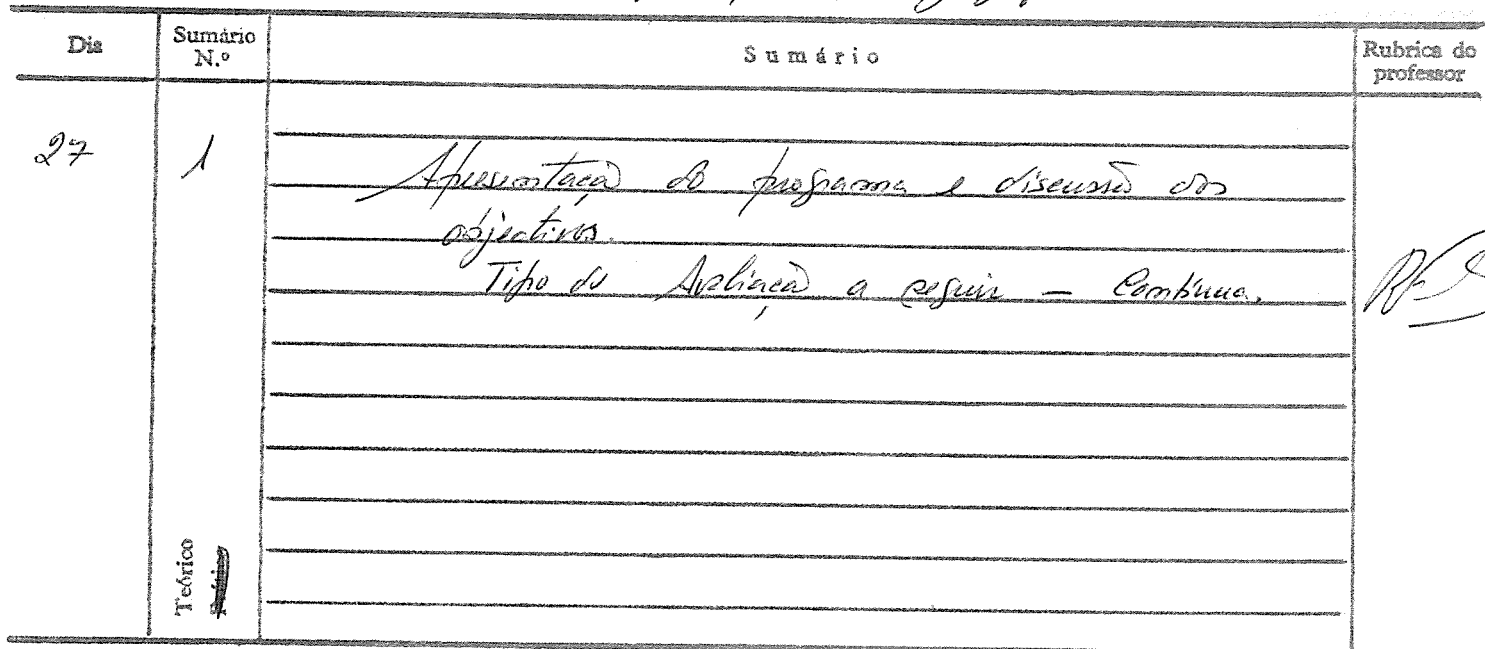 Dia
Sumário N.º
Sumário
Rubrica do professor
27
1
Apresentação do programa e discussão dos
objectivos.
Tipo de Avaliação a seguir — Contínua.
Teórico